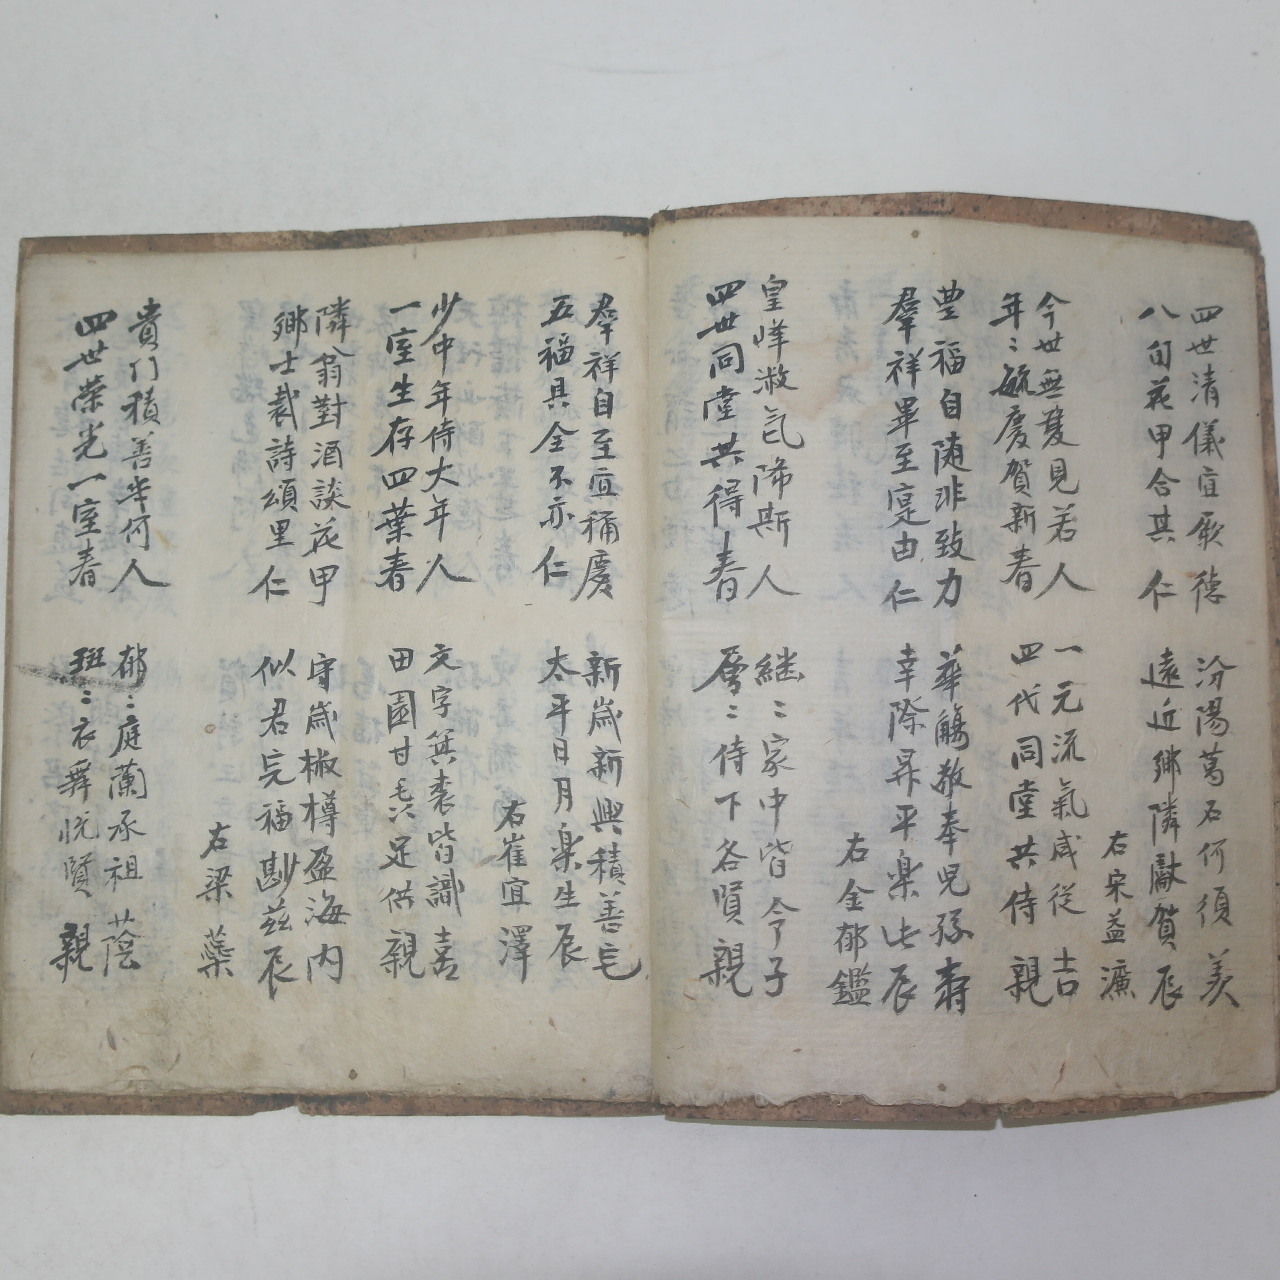 四世清儀宜厥德 汾陽萬石何須羨
八旬花甲合其仁 遠近鄉隣獻賀辰
右宋益濂
今世無雙見若人 一元流氣咸從吉
年〻毓慶賀新春 四代同堂共侍親
豊福自随非致力 華觴敬奉児孫壽
羣祥畢至寔由仁 幸際昇平楽此辰
右金郁鑑
皇峰淑氣降斯人 継〻家中皆令子
四世同堂共得春 層〻侍下各賢親
羣祥自至宜稱慶 新歲新興積善宅
五福具全不亦仁 太平日月楽生辰
右崔宜澤
少中年侍大年人 文字箕裘皆識喜
一室生存四葉春 田園甘毳足供親
隣翁對酒談花甲 守歲椒樽盈海内
鄉士裁詩頌里仁 似君完福尠茲辰
右梁藥
貴门積善半何人 郁〻庭蘭承祖蔭
四世榮光一室春 班〻衣舞悦賢親